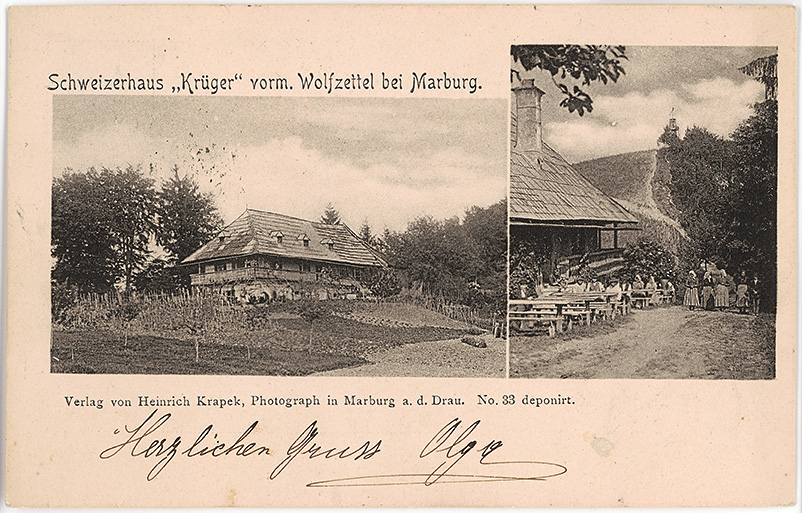 Schweizerhaus „Krüger“ vorm. Wolfzettel bei Marburg.
Verlag von Heinrich Krapek, Photograph in Marburg a. d. Drau. No. 33 deponirt.
Herzlichen Gruss Olga